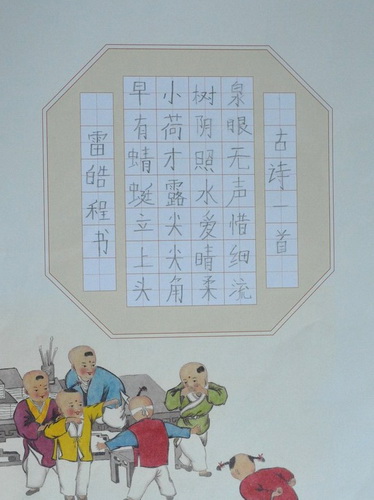 古诗一首
泉眼无声惜细流
树阴照水爱晴柔
小荷才露尖尖角
早有蜻蜓立上头
雷皓程书